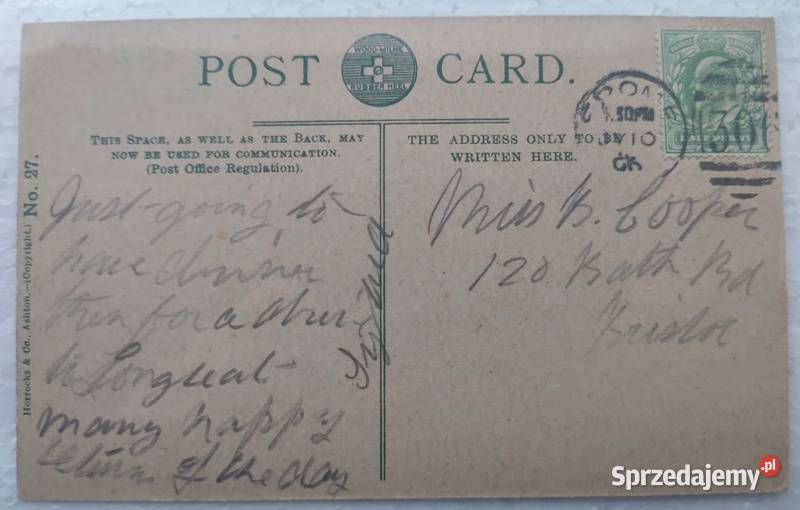 POST CARD.
WOOD-MILNE
RUBBER HEEL
THIS SPACE, AS WELL AS THE BACK, MAY
NOW BE USED FOR COMMUNICATION.
(Post Office Regulation).
THE ADDRESS ONLY TO BE
WRITTEN HERE.
Horrocks & Co., Ashton.—(Copyright.) No. 27.
Just going to
have dinner
then for a drive
to Longleat
many happy
returns of the day
Miss B. Cooper
120 Bath Rd
Bristol
.30PM
10
06
Sprzedajemy.pl